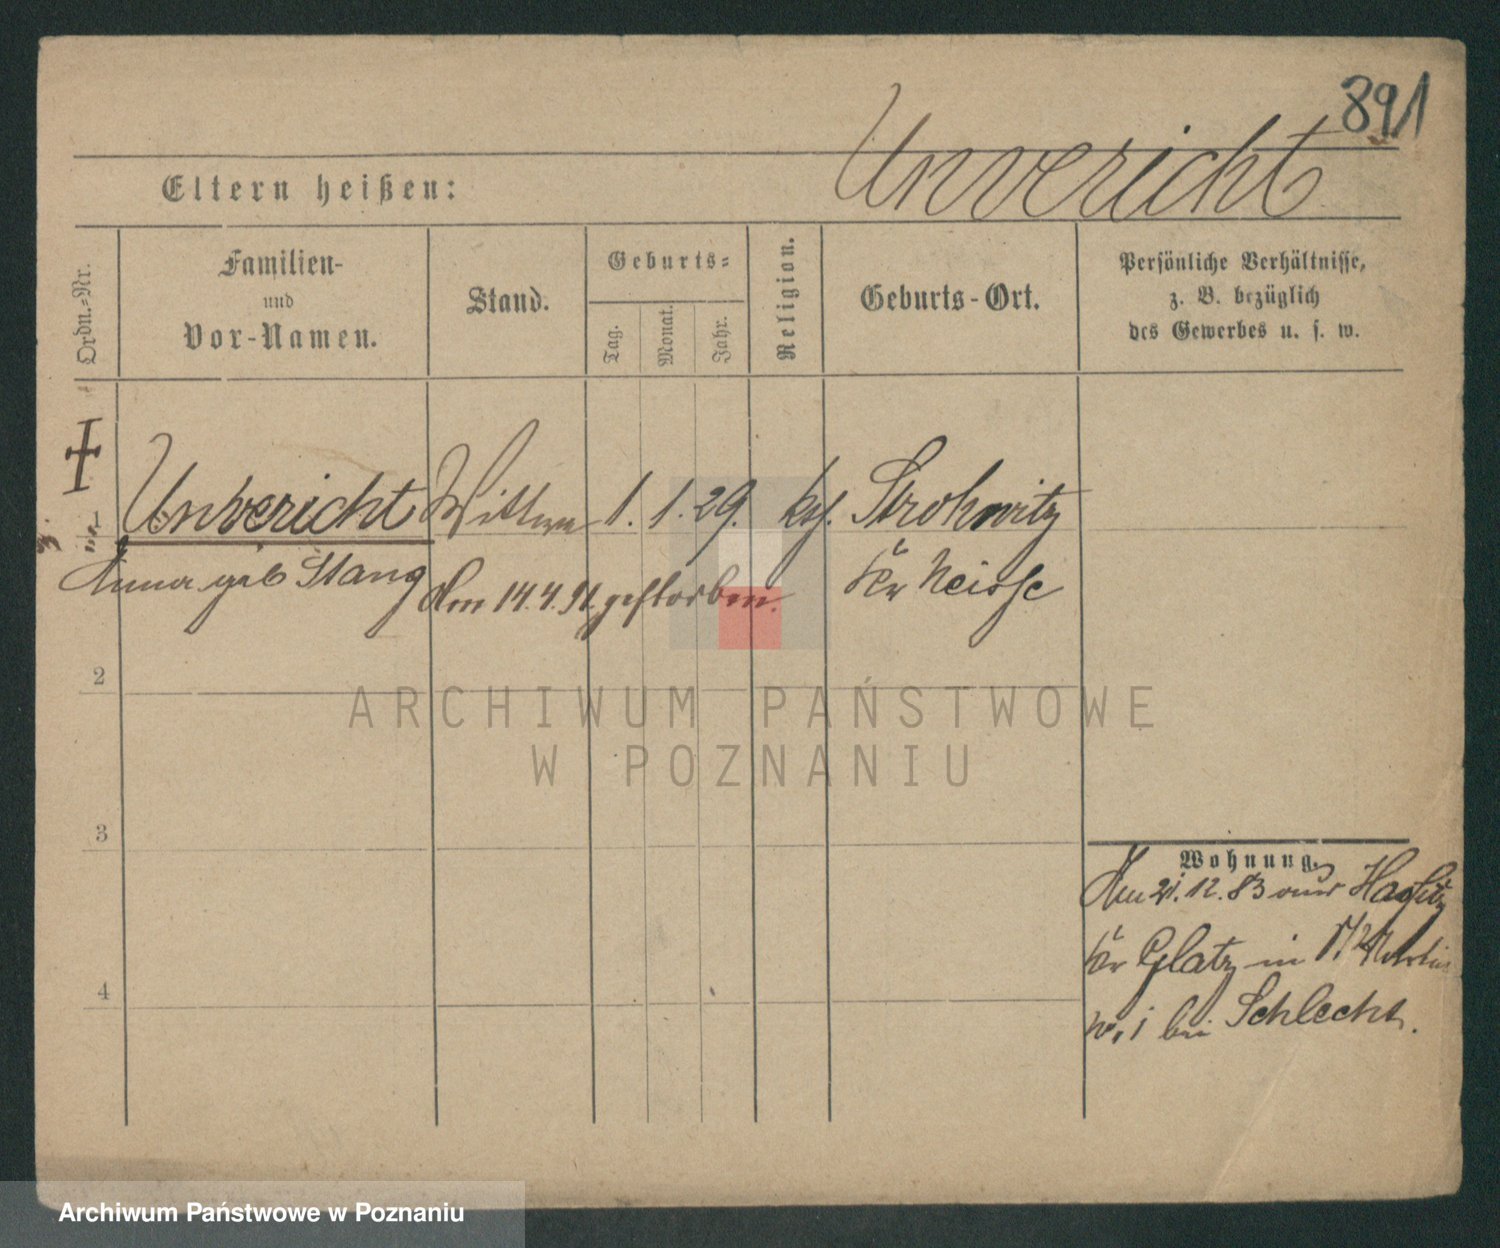 891
Unvericht
Eltern heißen:
Ordn.-Nr.
Familien-
und
Vor-Namen.
Stand.
Geburts-
Tag.
Monat.
Jahr.
Religion.
Geburts-Ort.
Persönliche Verhältnisse,
z. B. bezüglich
des Gewerbes u. s. w.
1
Unvericht Wittwe 1. 1. 29. kth. Strohwitz
Anna geb Stang
Kr Neisse
Am 14.4.91. gestorben.
2
3
4
Wohnung.
Am 21.12.83 aus
Kr Glatz in
No. 1 bei Schlecht.
ARCHIWUM PAŃSTWOWE
W POZNANIU
Archiwum Państwowe w Poznaniu